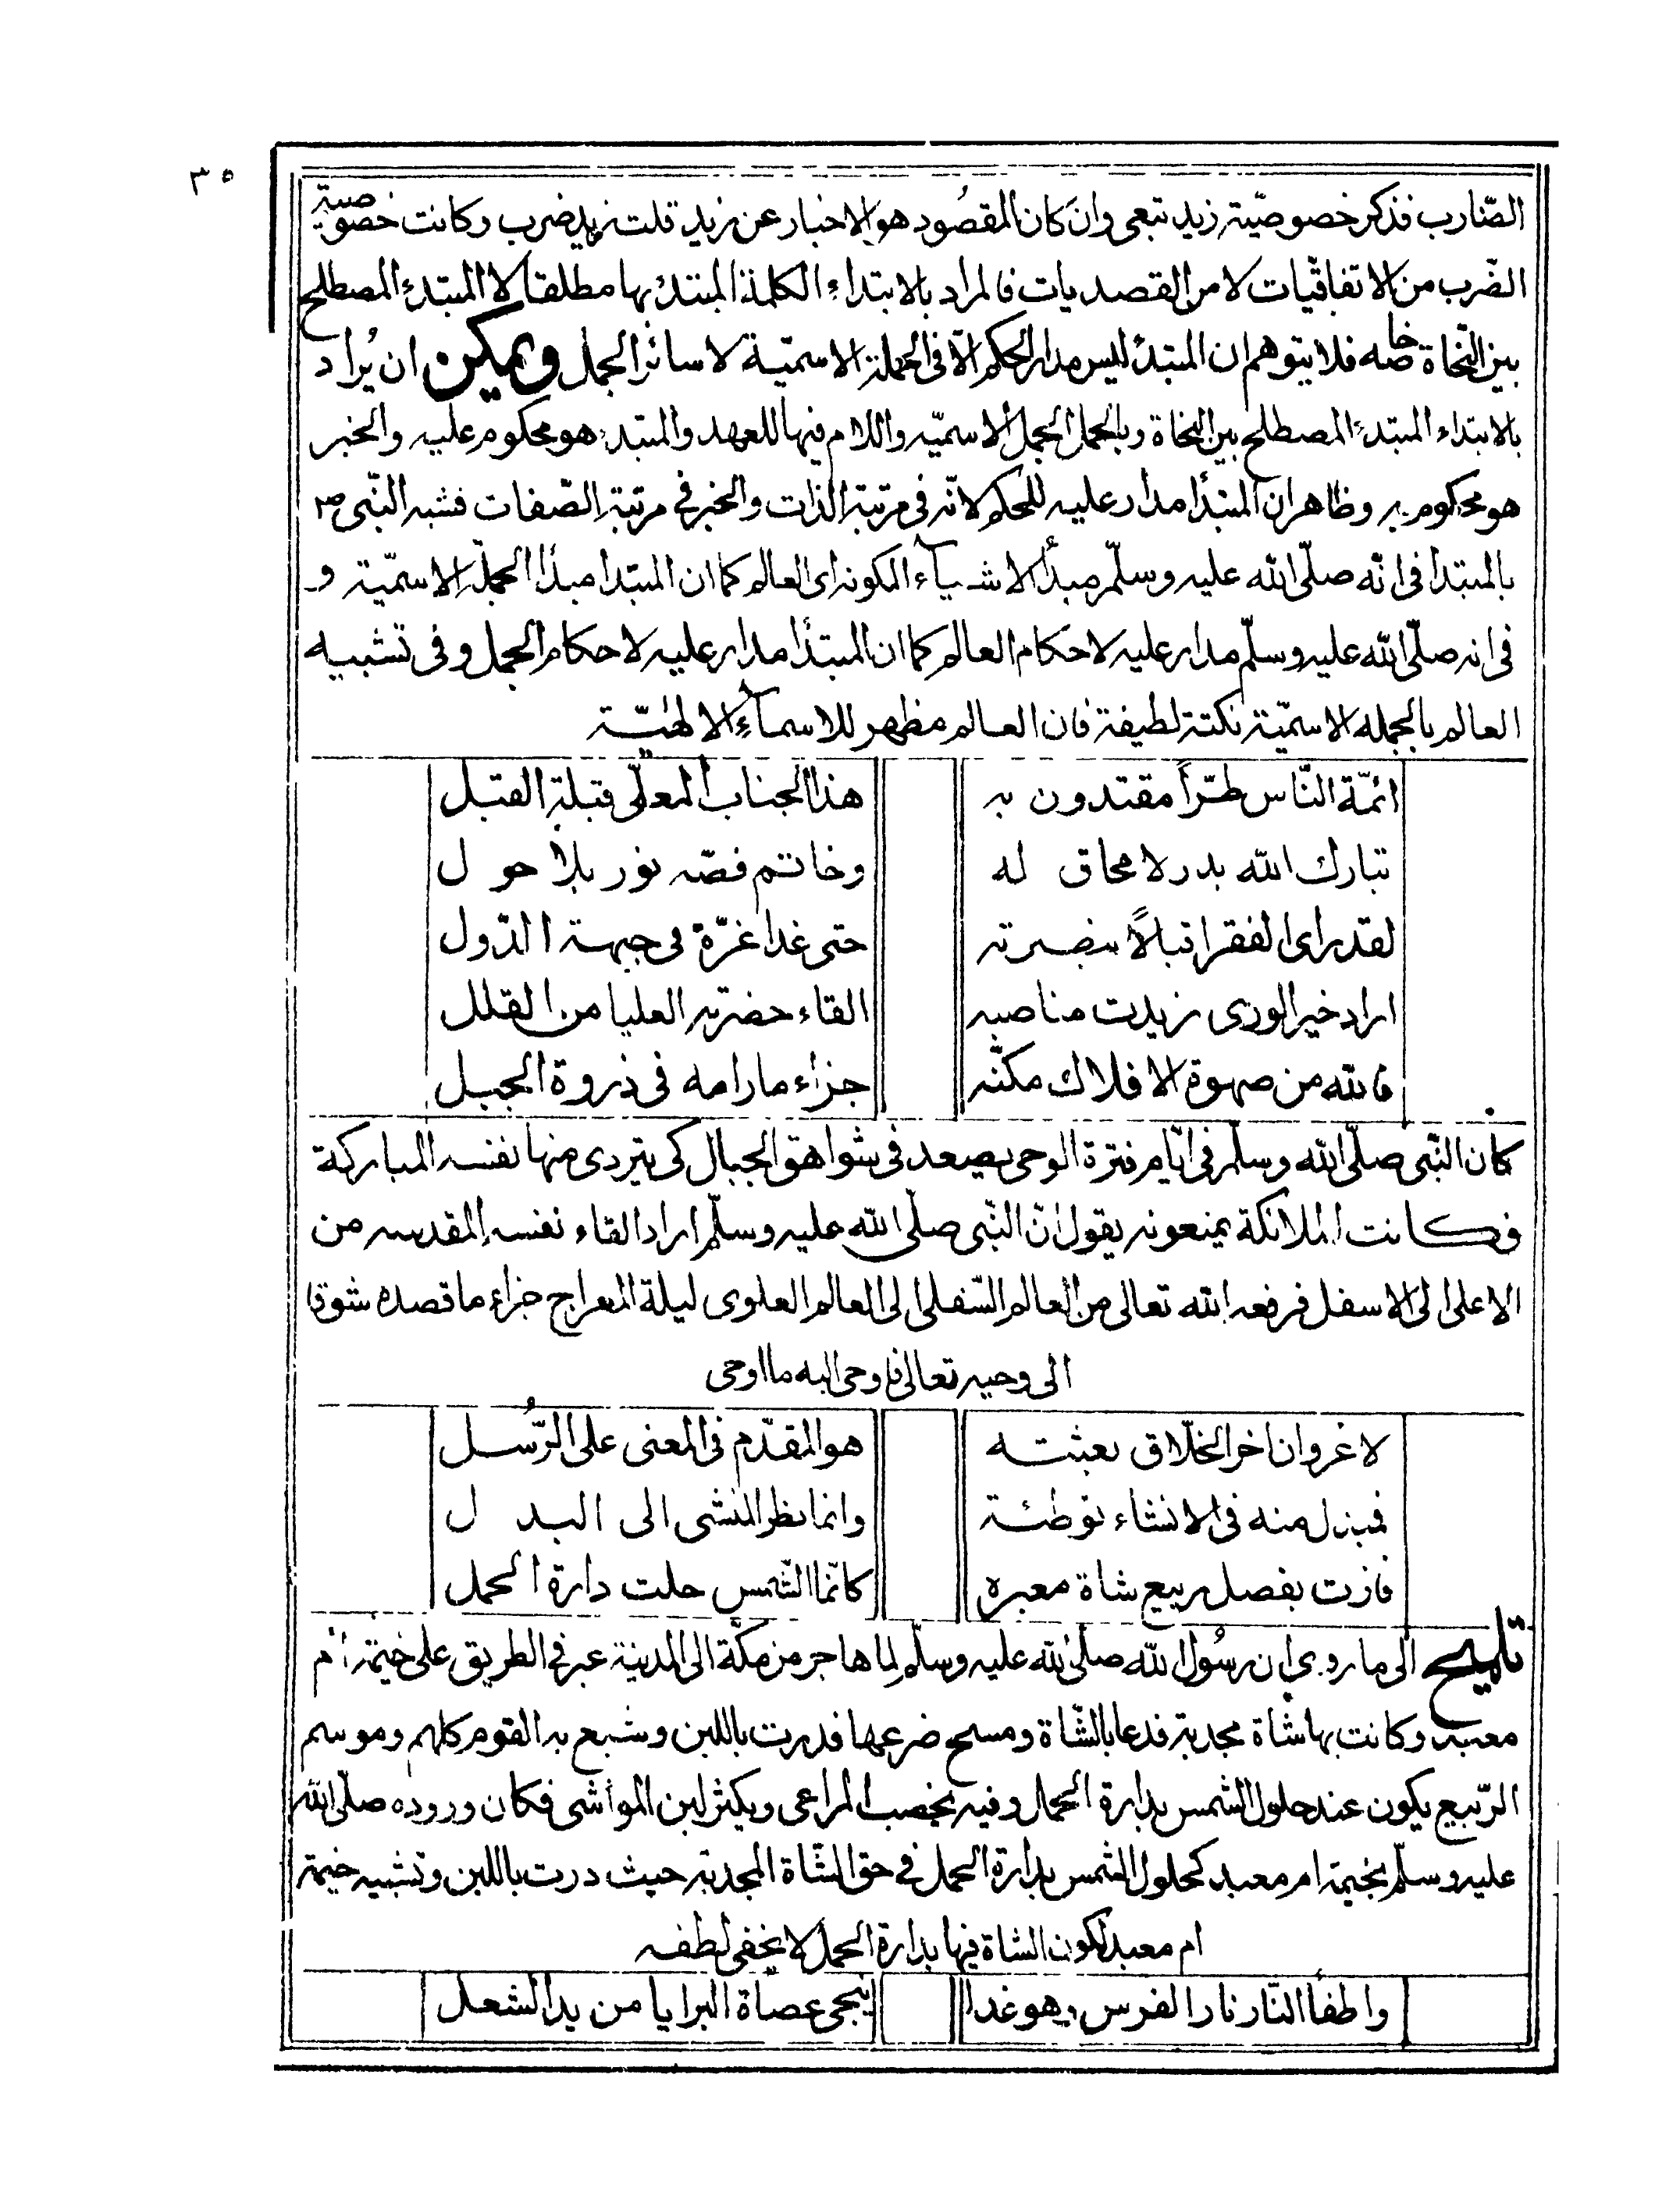 ٣٥
الضّارب فذكر خصوصيّة زيد تبعى وان كان المقصُود هو الاخبار عن زيد قلت زيد ضرب وكانت خصوصية
الضّرب من الاتفاقيّات لا من القصديات فالمراد بالابتداء الكلمة المبتدئ بها مطلقا لا المبتدئ المصطلح
بين النّحاة خاصه فلا يتوهم ان المبتدئ ليس مدار الحكم الّا فى الجملة الاسميّة لا سائر الجمل ويمكن ان يُراد
بالابتداء المبتدئ المصطلح بين النحاة وبالجمل الجمل الاسميّه واللام فيها للعهد والمبتدء هو محكوم عليه والخبر
هو محكوم به وظاهر ان المبتدأ مدار عليه للحكم لانّه فى مرتبة الذات والخبر فى مرتبة الصّفات فشبه النّبى ص
بالمبتدا فى انّه صلّى الله عليه وسلّم مبدأ الاشياء المكونه اى العالم كما ان المبتدا مبدأ الجملة الاسميّة و
فى انه صلّى الله عليه وسلّم مدار عليه لاحكام العالم كما ان المبتدأ مدار عليه لاحكام الجمل وفى تشبيه
العالم بالجمله الاسميّة نكتة لطيفة فان العالم مظهر للاسمآء الالهٰيّة
ائمّة النّاس طرّاً مقتدون به هذا الجناب المعلّى قبلة القبل
تبارك الله بدر لا محاق له وخاتم فصّه نور بلا حول
لقد راى الفقر اقبالاً بنضرته حتى غدا غرّة فى جبهة الدّول
اراد خير الورى زيدت مناصبه القاء حضرته العليا من القلل
فالله من صهوة الافلاك مكنّه جزاء ما رامه فى ذروة الجبل
كان النّبى صلّى الله وسلّم فى ايّام فترة الوحى يصعد فى شواهق الجبال كى يتردى منها نفسه المباركة
فكانت الملائكة يمنعونه يقول انّ النّبى صلّى الله عليه وسلّم اراد القاء نفسه المقدسه من
الاعلى الى الاسفل فرفعه الله تعالى من العالم السّفلى الى العالم العلوى ليلة المعراج جزاء ما قصده شوقا
الى وحيه تعالى فاوحى اليه ما اوحى
لا غرو ان اخر الخلّاق بعثته هو المقدّم فى المعنى على الرّسل
فمبدل منه فى الانشاء توطئة وانما نظر المنشى الى البدل
فازت بفصل ربيع شاة معبره كانّما الشّمس حلت دارة الحمل
تلميح الى ما روى ان رسُول الله صلّى الله عليه وسلّم لما هاجر من مكّة الى المدينة عبر فى الطريق على خيمة ام
معبد وكانت بها شاة مجدبة فدعا بالشّاة ومسح ضرعها فدرت باللبن وشبع به القوم كلهم وموسم
الرّبيع يكون عند حلول الشمس بدارة الحمل وفيه يخصب المراعى ويكثر لبن المواشى فكان وروده صلّى الله
عليه وسلّم بخيمة ام معبد كحلول الشمس بدارة الحمل فى حق الشّاة المجدبة حيث درت باللبن وتشبيه خيمة
ام معبد لكون الشاة فيها بدارة الحمل لا يخفى لطفه
واطفأ النّار نار الفرس وهو غدا ينجى عصاة البرايا من يد الشعل